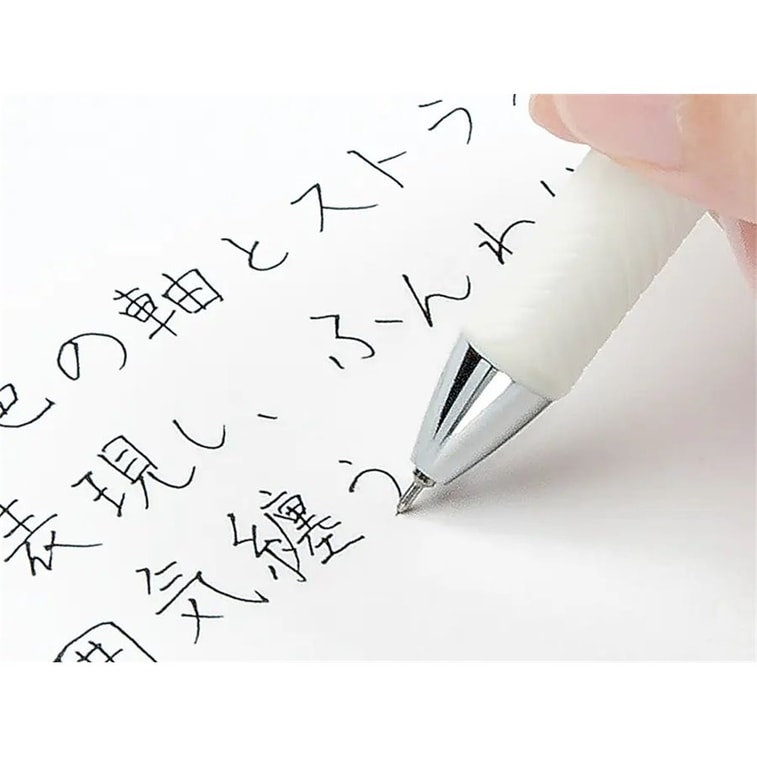 色の軸とストラ
表現し、ふんわ
囲気纏う